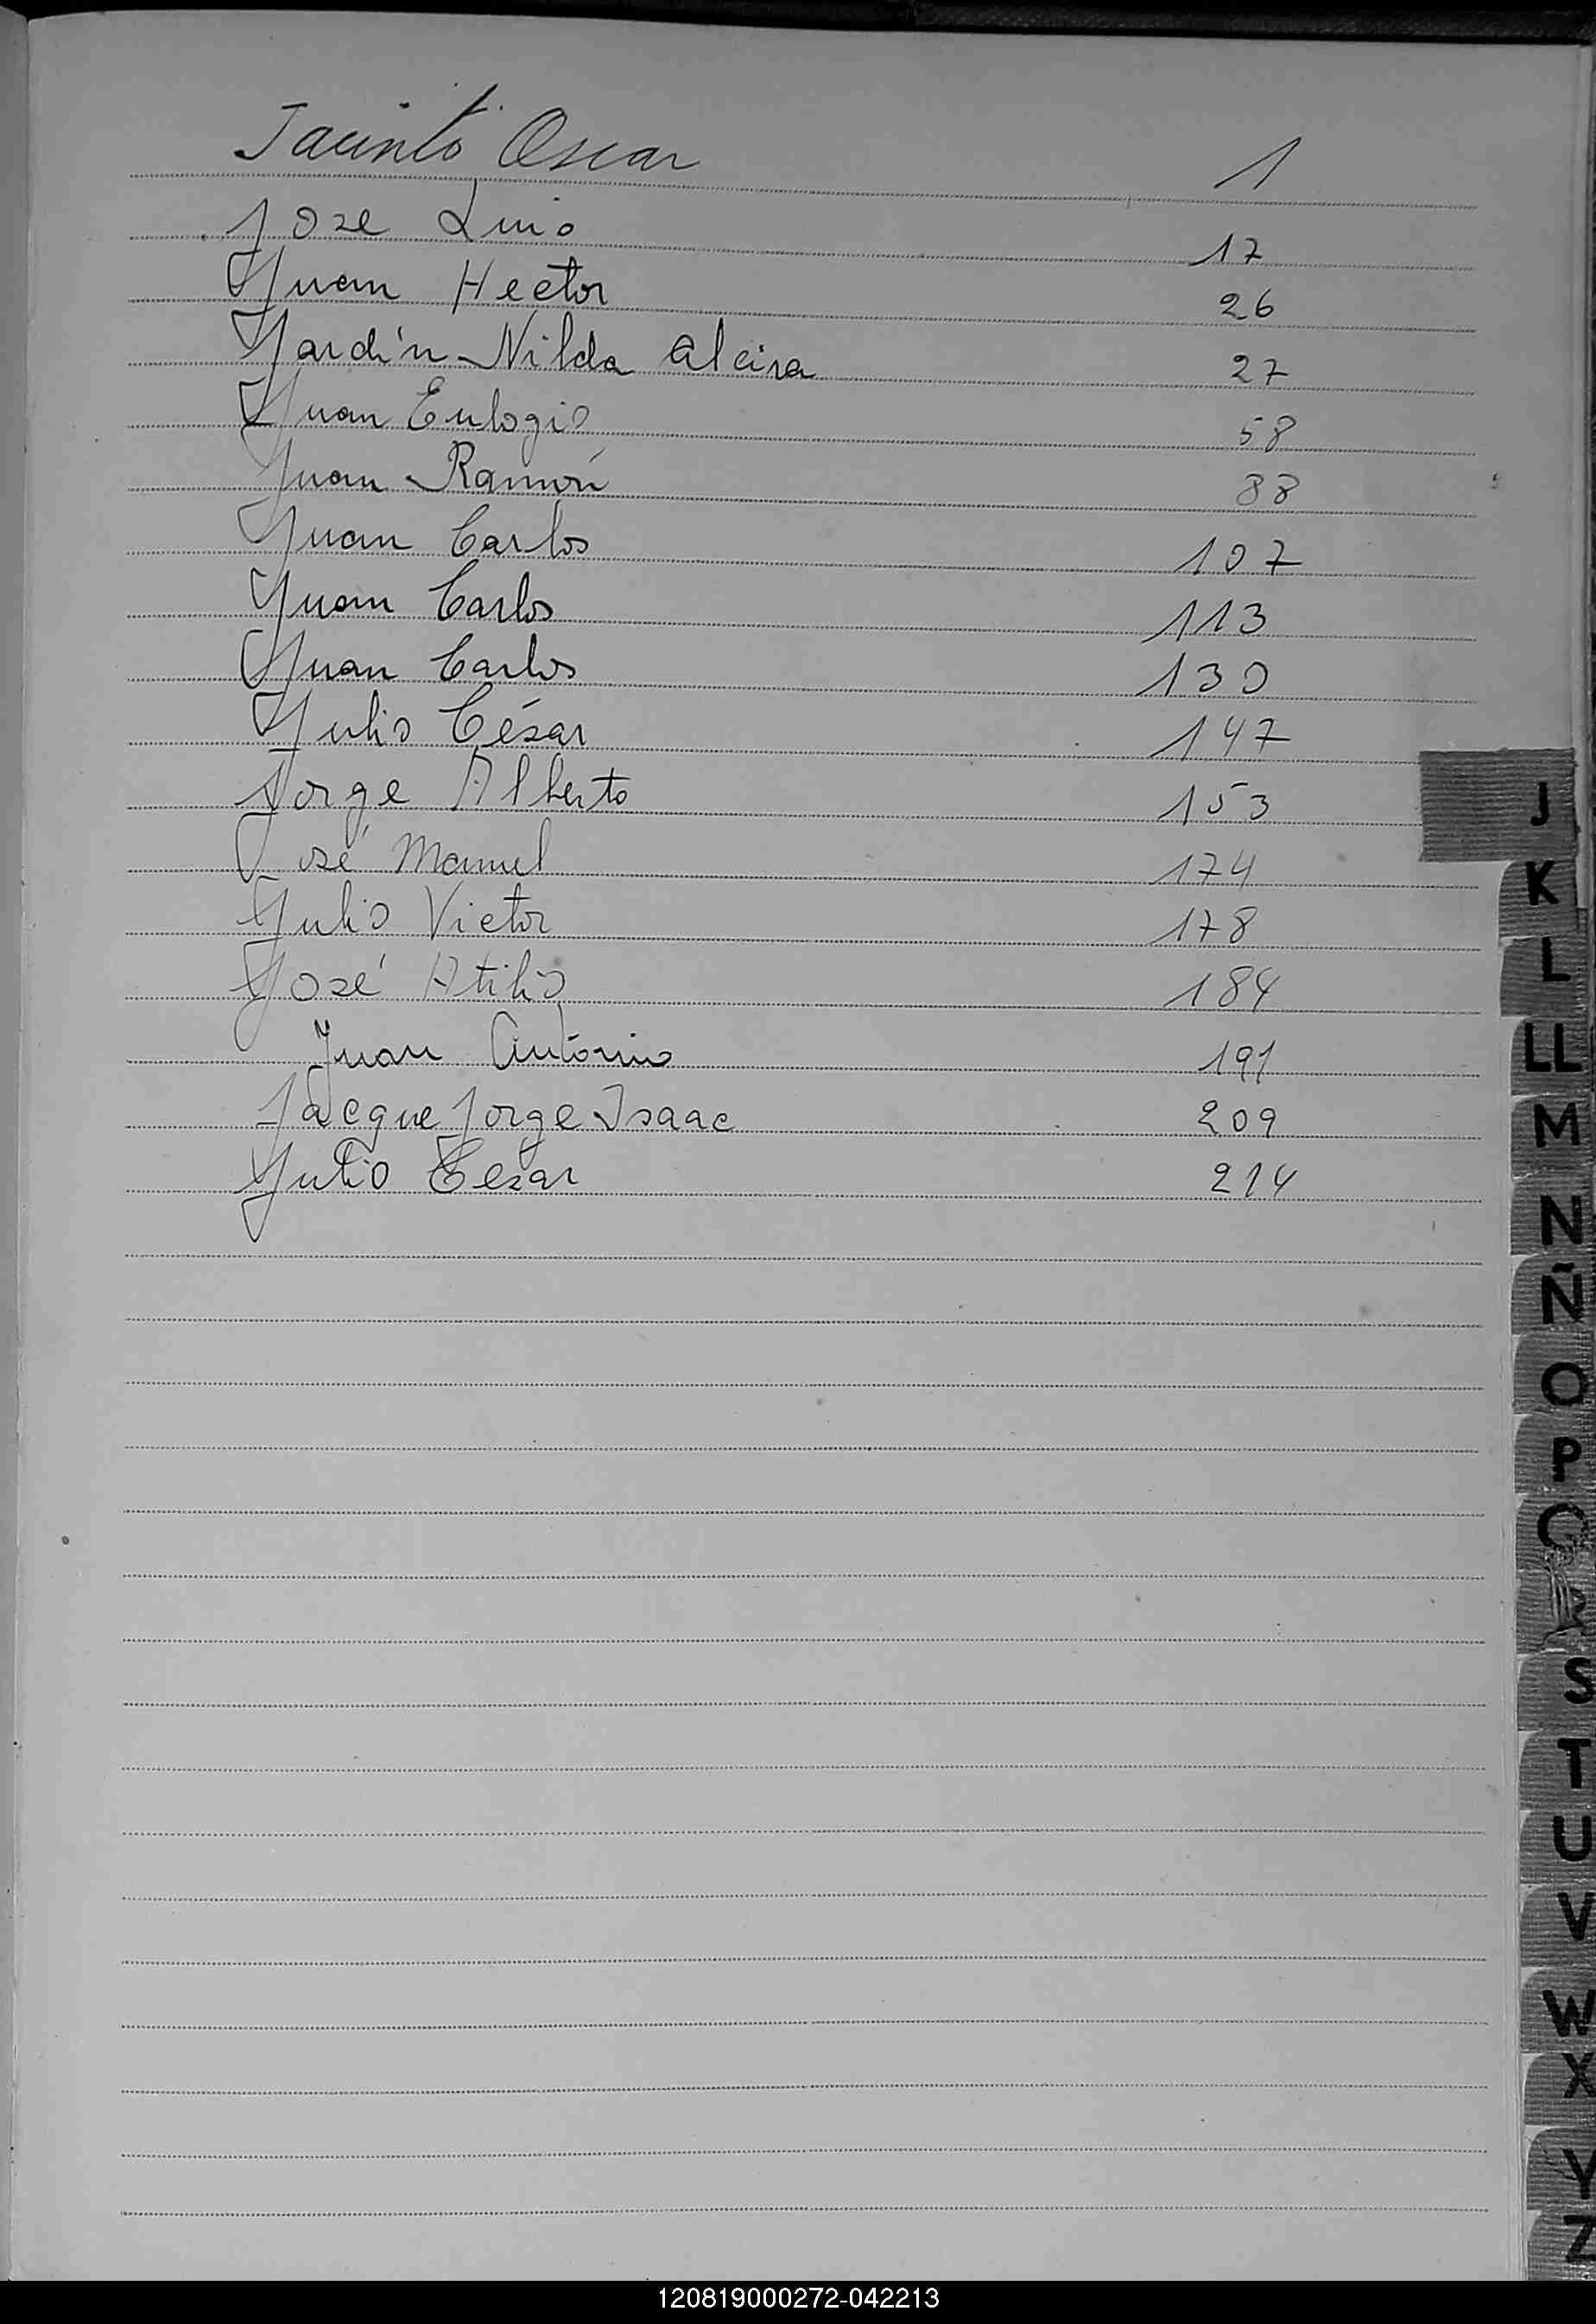 Jacinto Oscar 1
Jose Luis 17
Juan Hector 26
Jardín Nilda Alcira 27
Juan Eulogio 58
Juan Ramón 88
Juan Carlos 107
Juan Carlos 113
Juan Carlos 130
Julio César 147
Jorge Alberto 153
José Manuel 174
Julio Victor 178
José Atilio 184
Juan Antonio 191
Jacque Jorge Isaac 209
Julio Cesar 214
J
K
L
LL
M
N
Ñ
O
P
Q
S
T
U
V
W
X
Y
Z
120819000272-042213